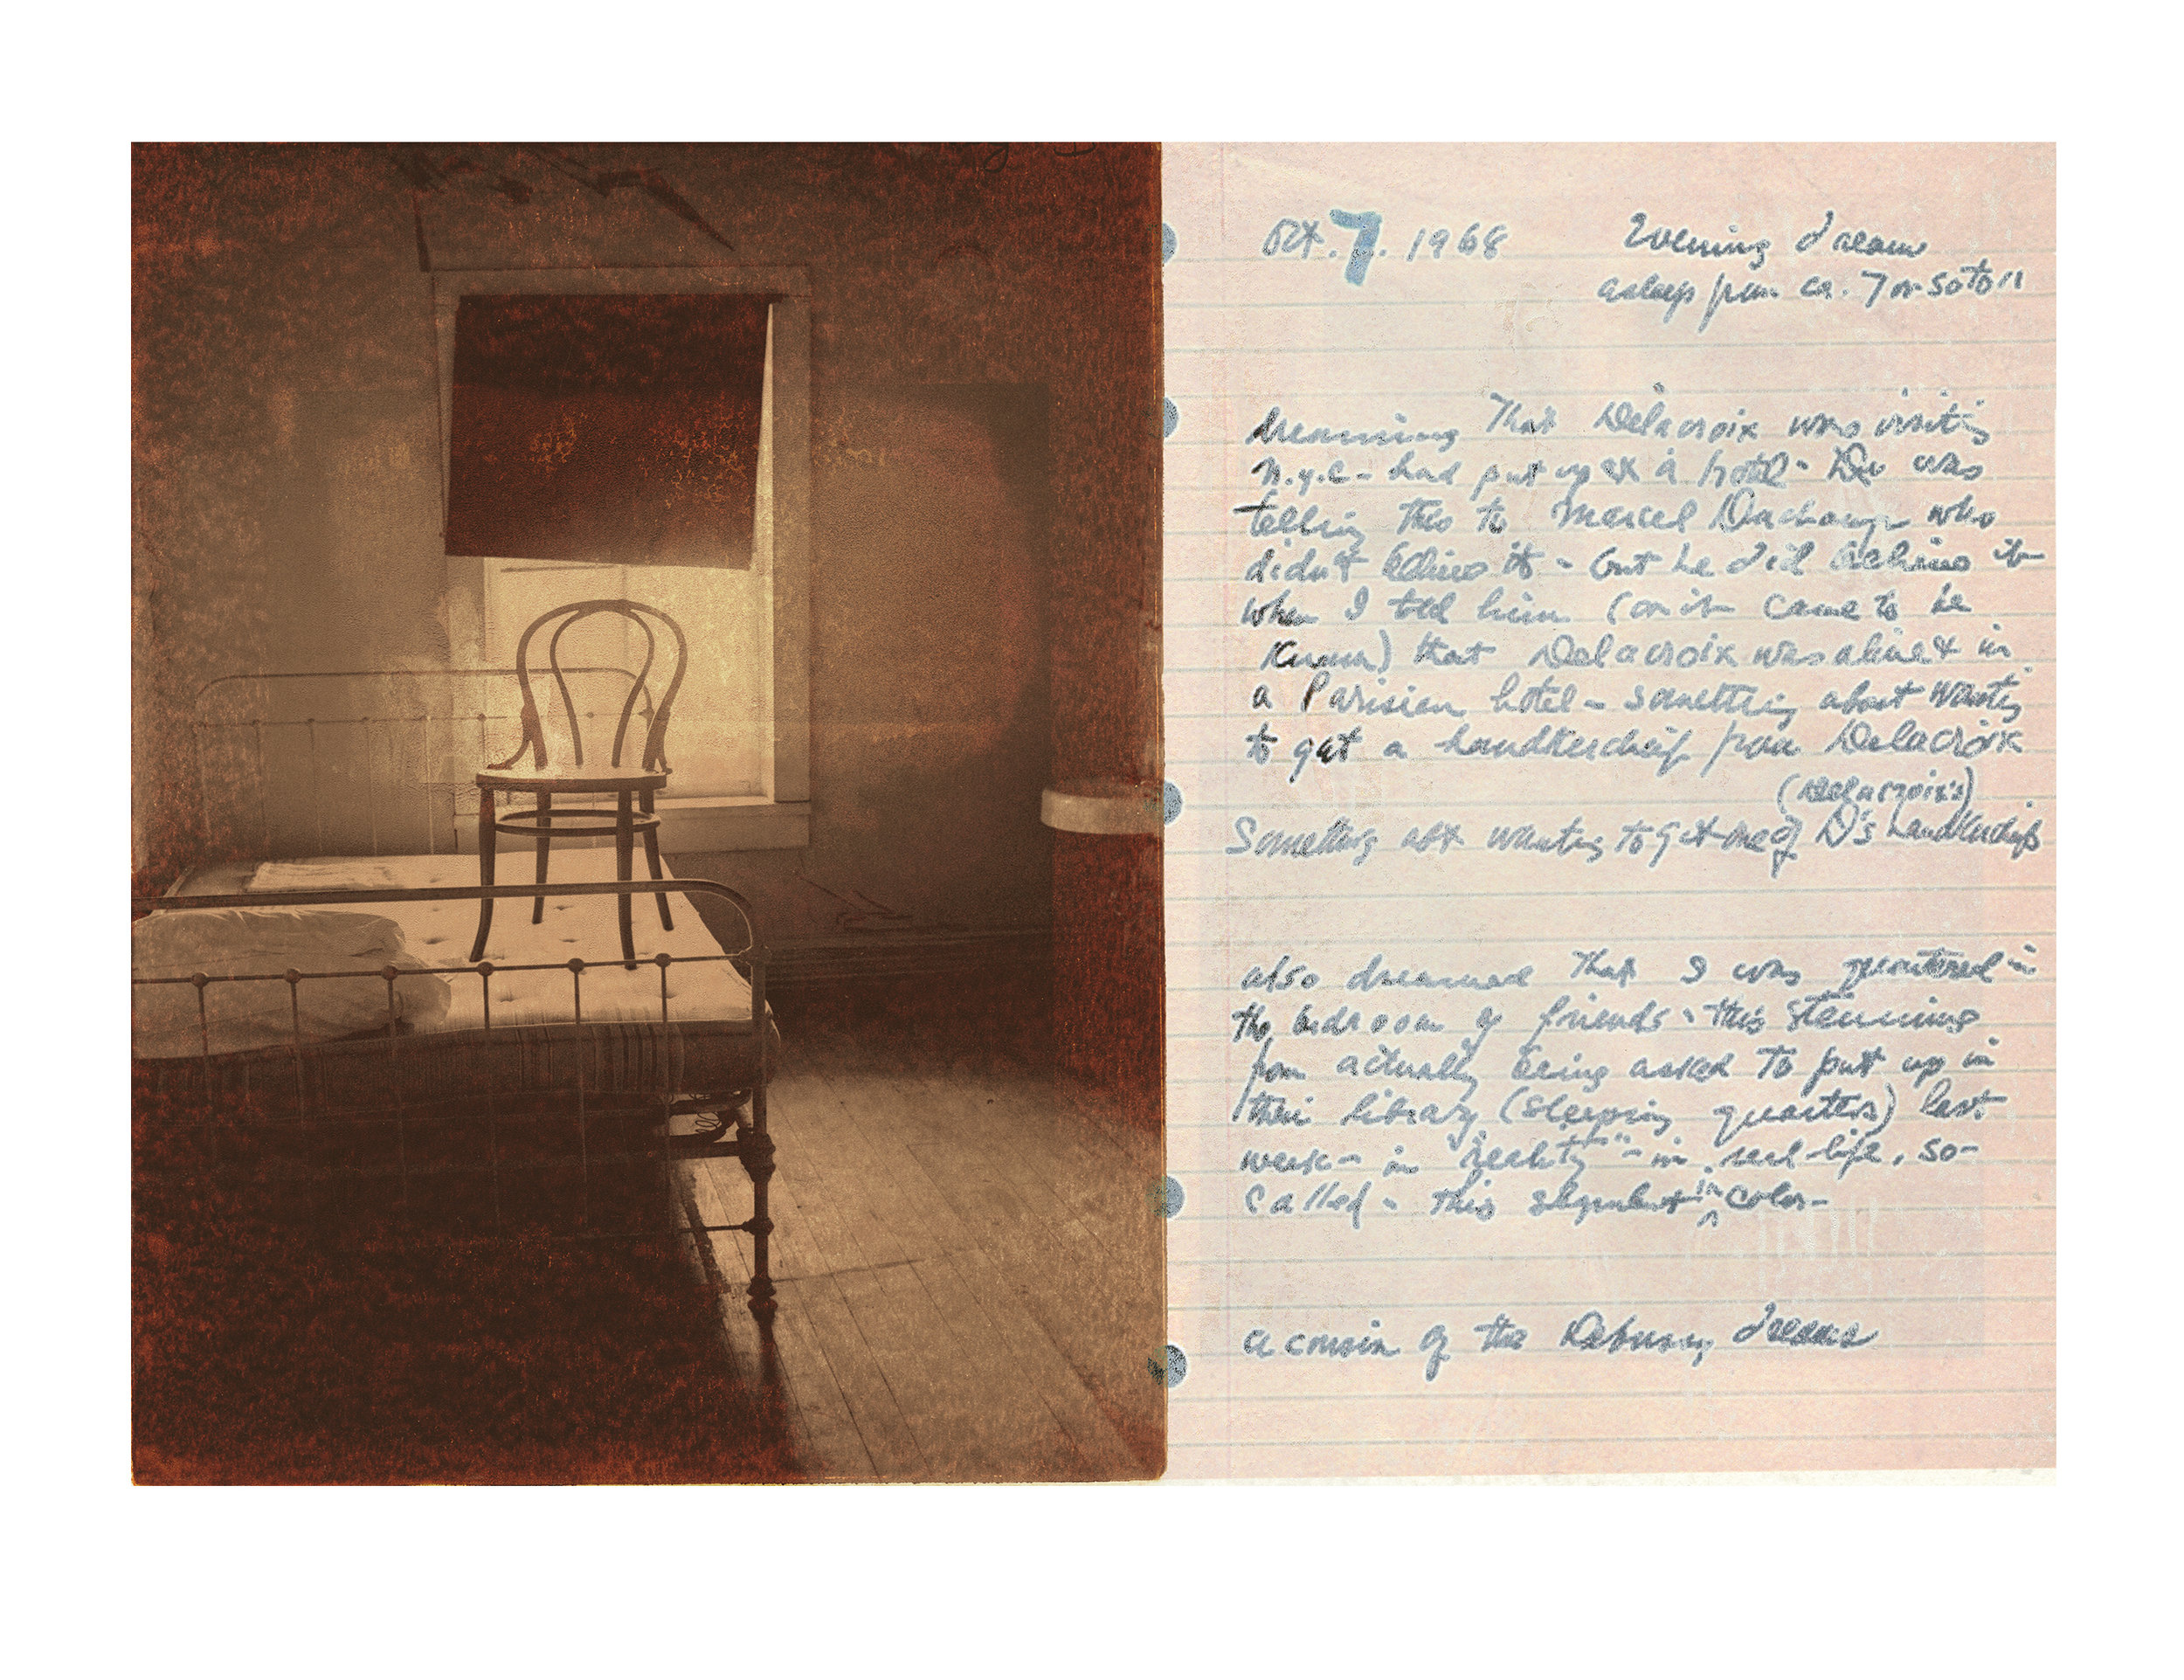 Oct. 7. 1968
Evening dream
asleep from ca. 7 or so to 11
dreaming that Delacroix was visiting
N.Y.C - had put up at a hotel - was
telling this to Marcel Duchamp who
didn't believe it - but he did believe it
when I told him (or it came to be
known) that Delacroix was alive & in
a Parisian hotel - something about wanting
to get a handkerchief from Delacroix
(Delacroix's)
Something abt wanting to get one of D's handkerchiefs
also dreamed that I was quartered in
the bedroom of friends - this stemming
from actually being asked to put up in
their library (sleeping quarters) last
week - in "reality" - in real-life, so-
called - this segment in color -
a cousin of the Debussy dreams